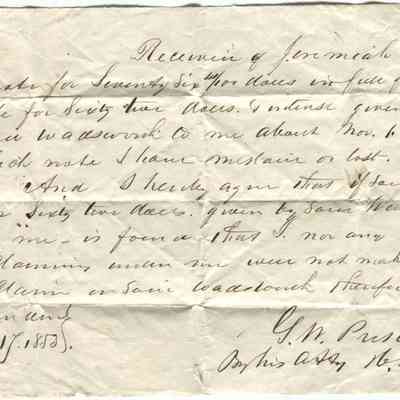 Receivd of Jeremiah
for Seventy Six /100 dolls in full of
for Sixty two dolls. & intrest given
Wadswork to me about Nov. 6
note I have mislaid or lost.
And I hereby agree that if said
Sixty two dolls. given by said Wa
me - is found that I nor any
claiming under me will not mak
claim on said Wadsworth therefo
17. 1853.
G. W. Pres
By his Atty H.